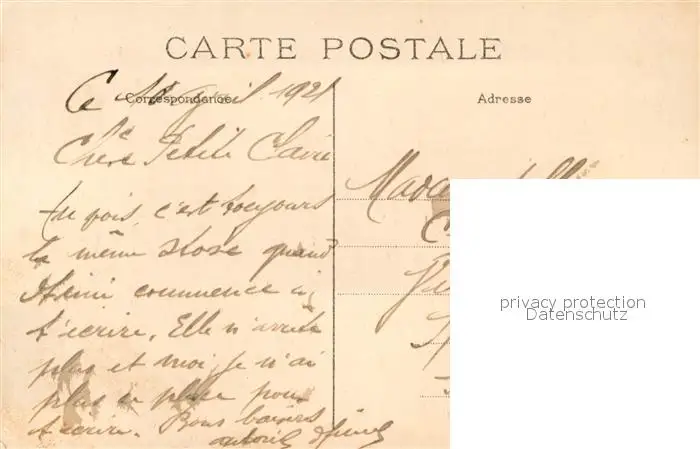 CARTE POSTALE
Correspondance
Adresse
Ce 10 Avril 1921
Chère Petite Claire
tu vois c'est toujours
la même chose quand
commence à
t'écrire, Elle n'arrête
plus et moi je n'ai
plus de place pour
t'écrire. Bons baisers
privacy protection
Datenschutz